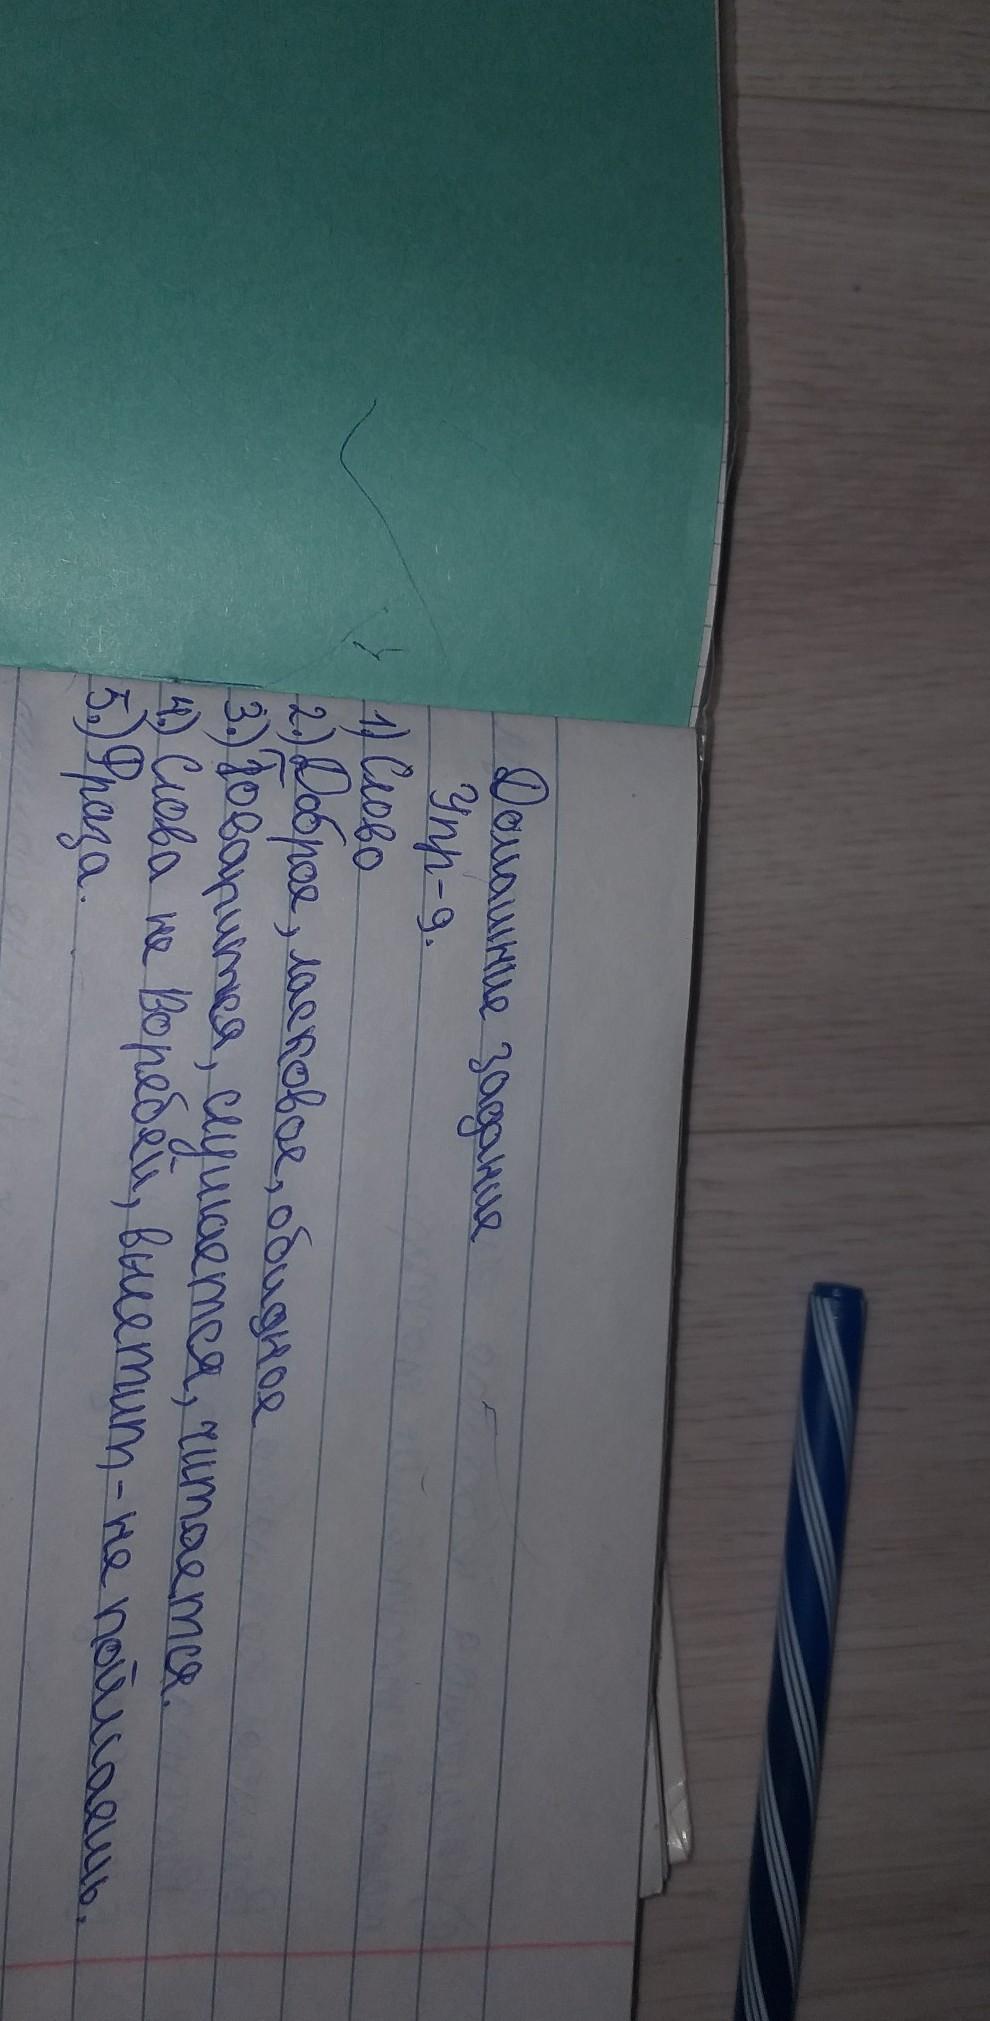 Домашние задание
Упр-9.
1) Слово
2.) Доброе, ласковое, обидное
3.) Говорится, слушается, читается.
4.) Слова не Воребей, вылетит-не поймаешь.
5.) Фраза.